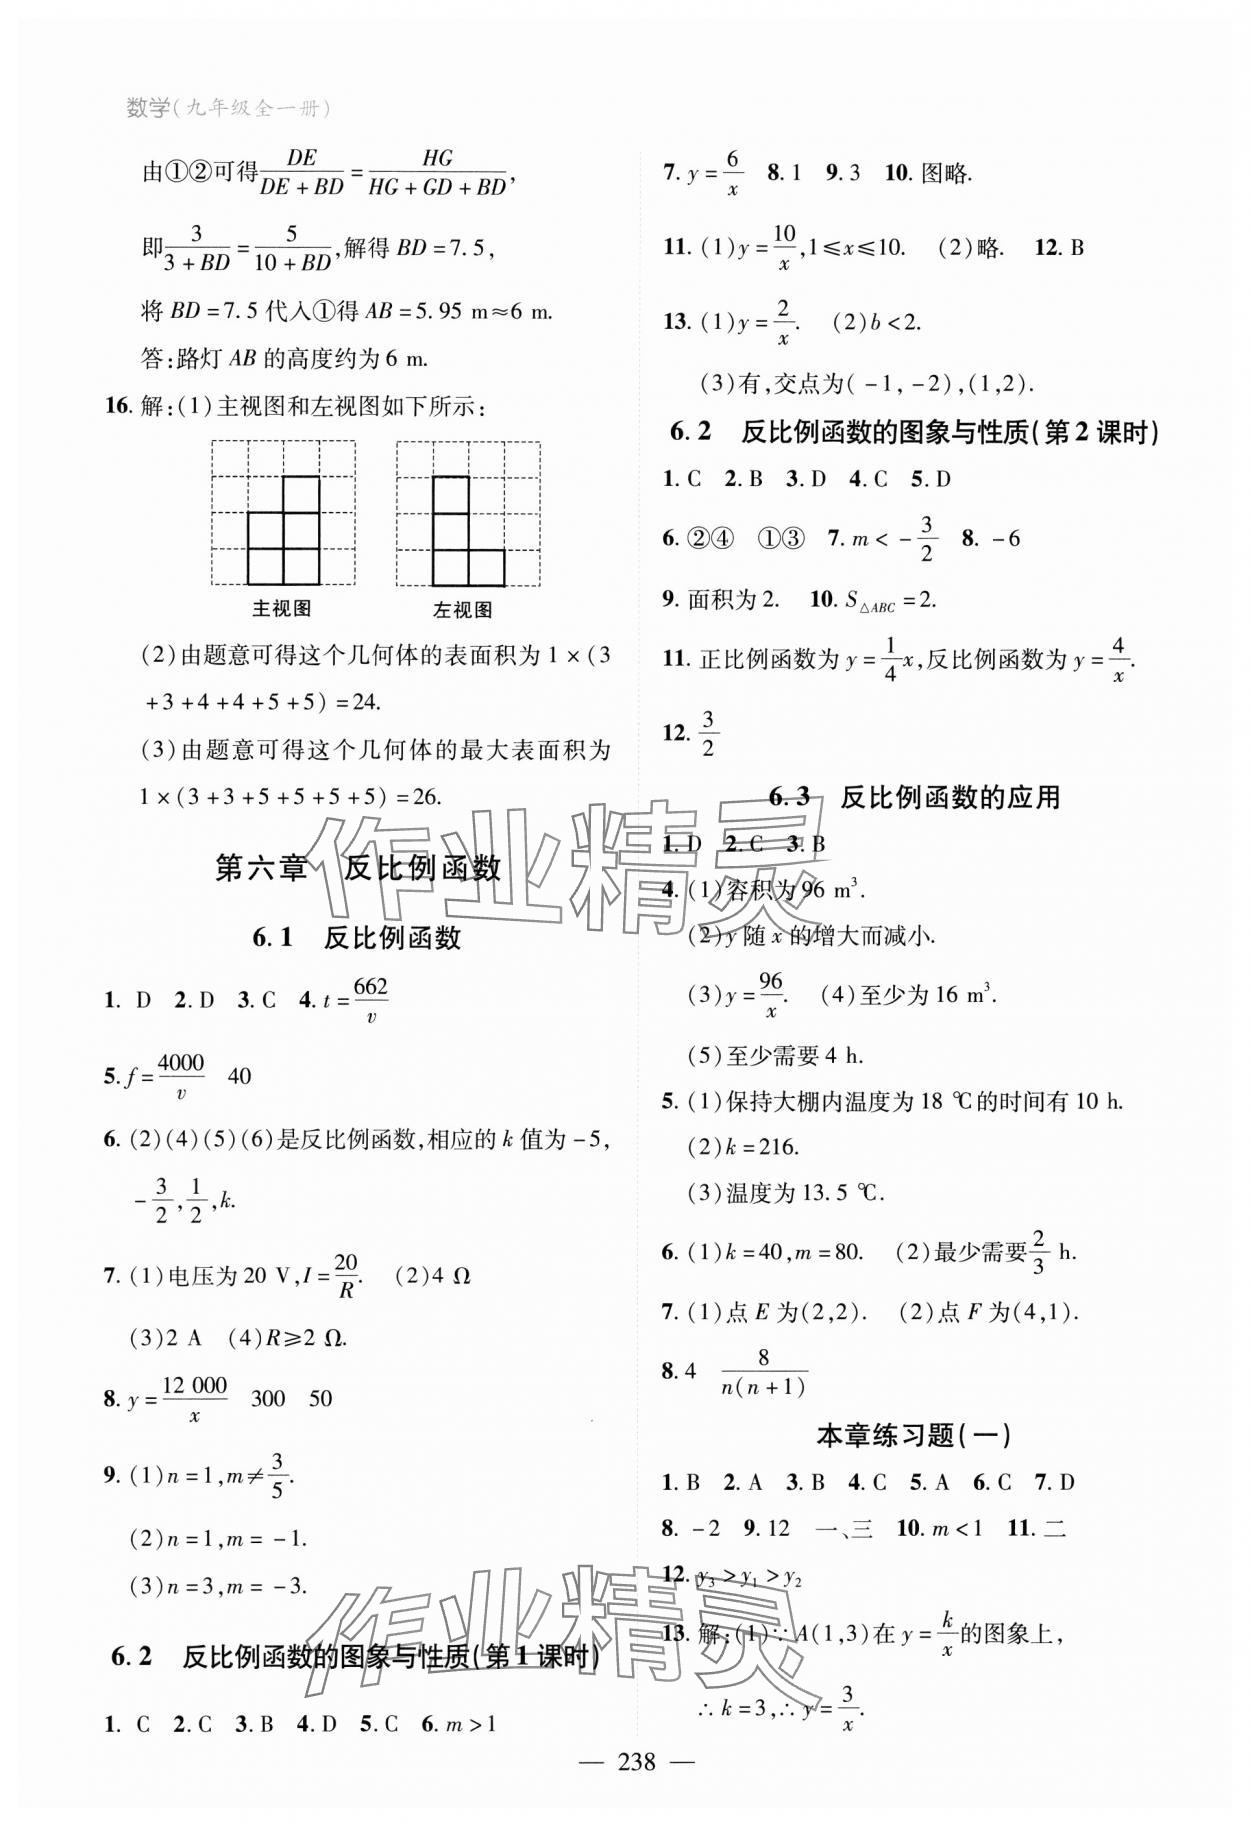 数学(九年级全一册)
由①②可得DE/(DE+BD)=HG/(HG+GD+BD),
即3/(3+BD)=5/(10+BD),解得BD=7.5,
将BD=7.5代入①得AB=5.95 m≈6 m.
答:路灯AB的高度约为6 m.
16. 解:(1)主视图和左视图如下所示:
主视图 左视图
(2)由题意可得这个几何体的表面积为1×(3
+3+4+4+5+5)=24.
(3)由题意可得这个几何体的最大表面积为
1×(3+3+5+5+5+5)=26.
第六章 反比例函数
6.1 反比例函数
1. D 2. D 3. C 4. t=662/v
5. f=4000/v 40
6. (2)(4)(5)(6)是反比例函数,相应的k值为-5,
-3/2,1/2,k.
7. (1)电压为20 V,I=20/R. (2)4 Ω
(3)2 A (4)R≥2 Ω.
8. y=12 000/x 300 50
9. (1)n=1,m≠3/5.
(2)n=1,m=-1.
(3)n=3,m=-3.
6.2 反比例函数的图象与性质(第1课时)
1. C 2. C 3. B 4. D 5. C 6. m>1
7. y=6/x 8. 1 9. 3 10. 图略.
11. (1)y=10/x,1≤x≤10. (2)略. 12. B
13. (1)y=2/x. (2)b<2.
(3)有,交点为(-1,-2),(1,2).
6.2 反比例函数的图象与性质(第2课时)
1. C 2. B 3. D 4. C 5. D
6. ②④ ①③ 7. m<-3/2 8. -6
9. 面积为2. 10. S△ABC=2.
11. 正比例函数为y=1/4x,反比例函数为y=4/x.
12. 3/2
6.3 反比例函数的应用
1. D 2. C 3. B
4. (1)容积为96 m³.
(2)y随x的增大而减小.
(3)y=96/x. (4)至少为16 m³.
(5)至少需要4 h.
5. (1)保持大棚内温度为18 ℃的时间有10 h.
(2)k=216.
(3)温度为13.5 ℃.
6. (1)k=40,m=80. (2)最少需要2/3 h.
7. (1)点E为(2,2). (2)点F为(4,1).
8. 4 8/n(n+1)
本章练习题(一)
1. B 2. A 3. B 4. C 5. A 6. C 7. D
8. -2 9. 12 一、三 10. m<1 11. 二
12. y₃>y₁>y₂
13. 解:(1)∵A(1,3)在y=k/x的图象上,
∴k=3,∴y=3/x.
— 238 —
作业精灵
作业精灵